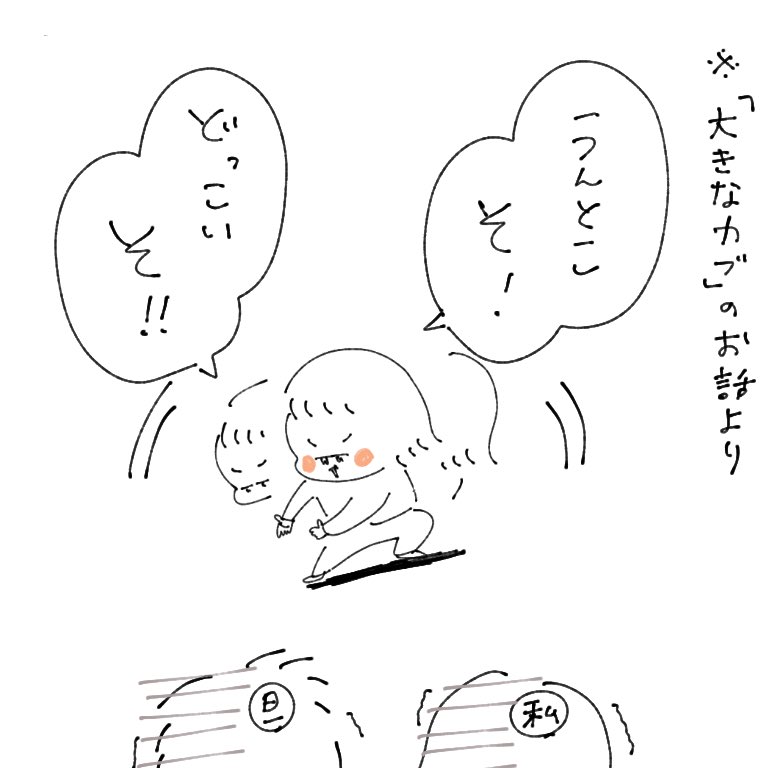 ※「大きなカブ」のお話より
うんとこ
そ!
どっこい
そ!!
私
旦